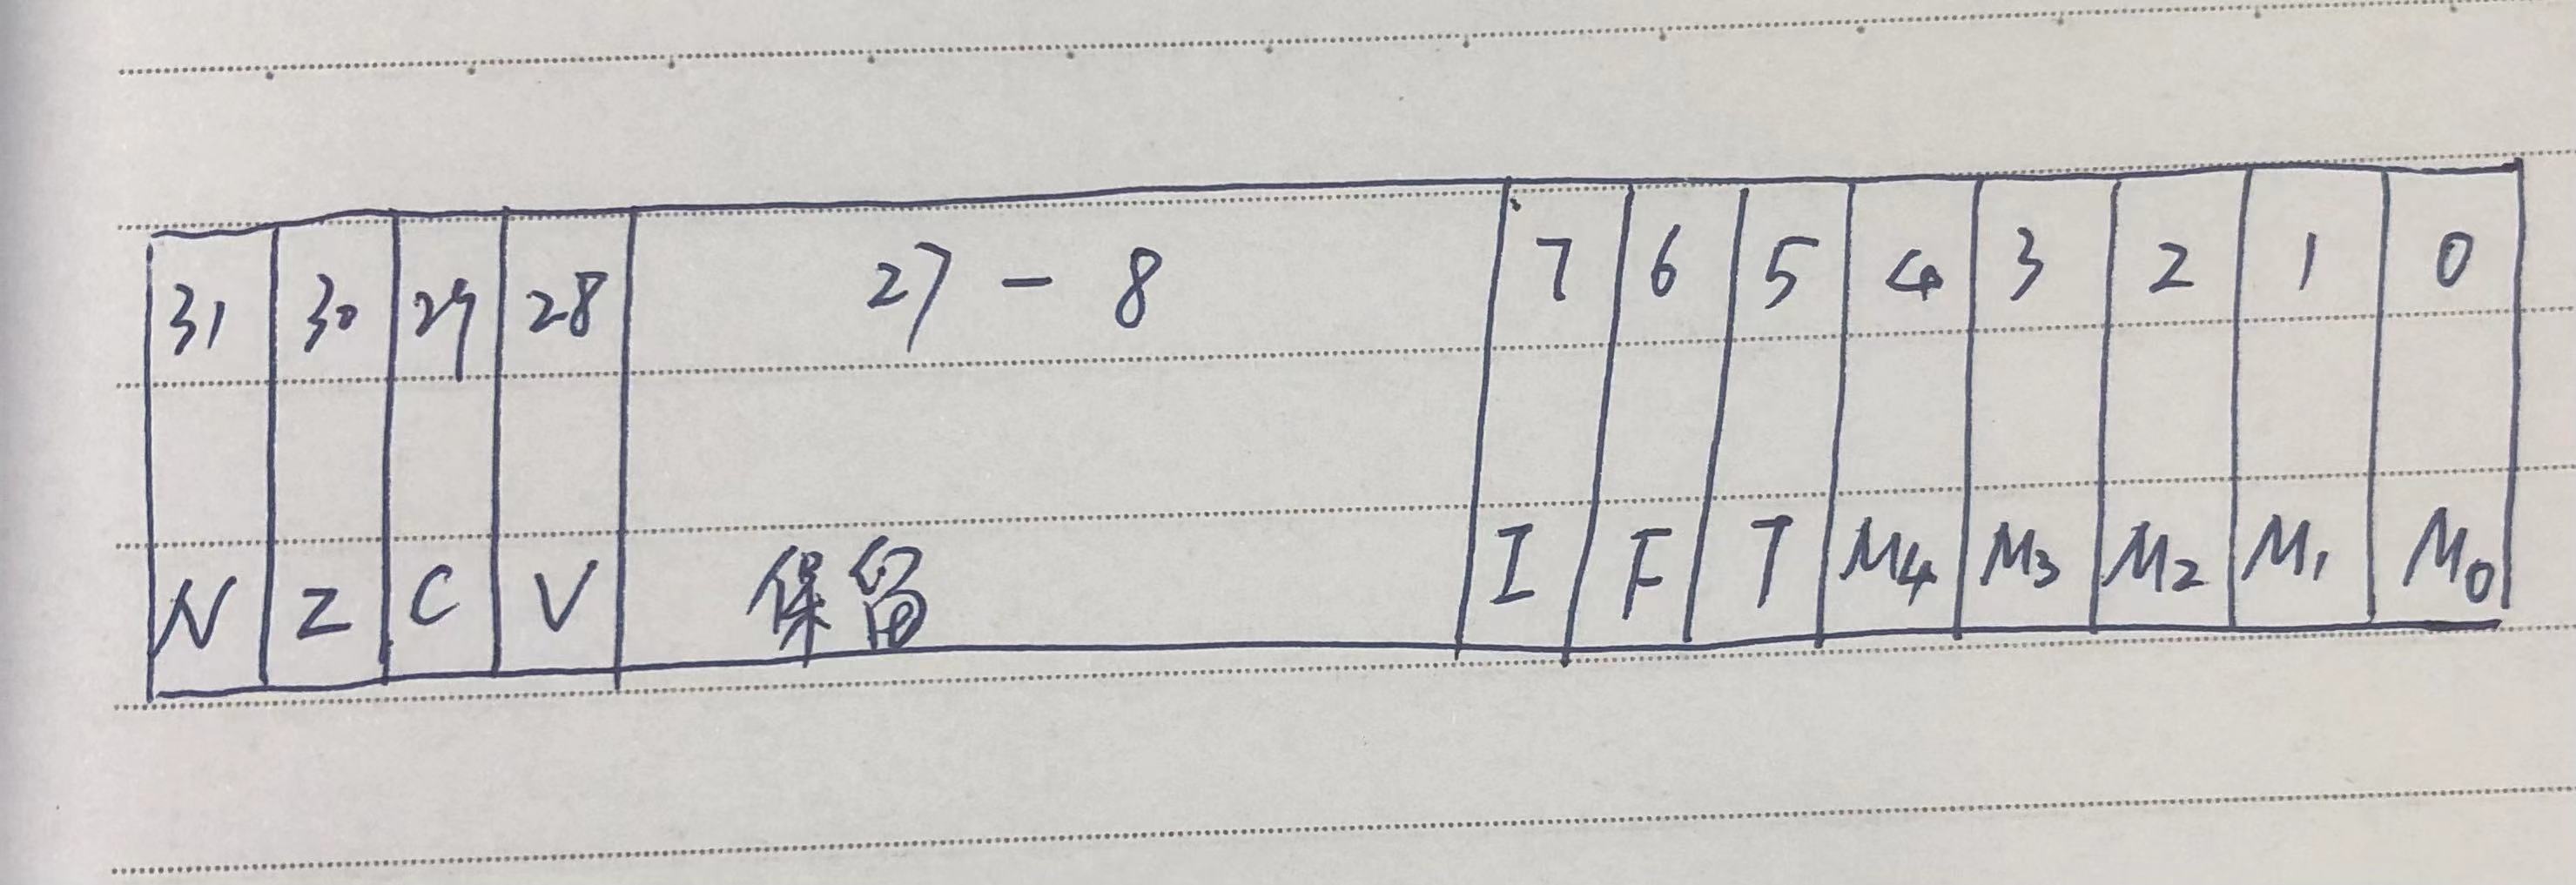 31 30 29 28 27 - 8 7 6 5 4 3 2 1 0
N Z C V 保留 I F T M4 M3 M2 M1 M0